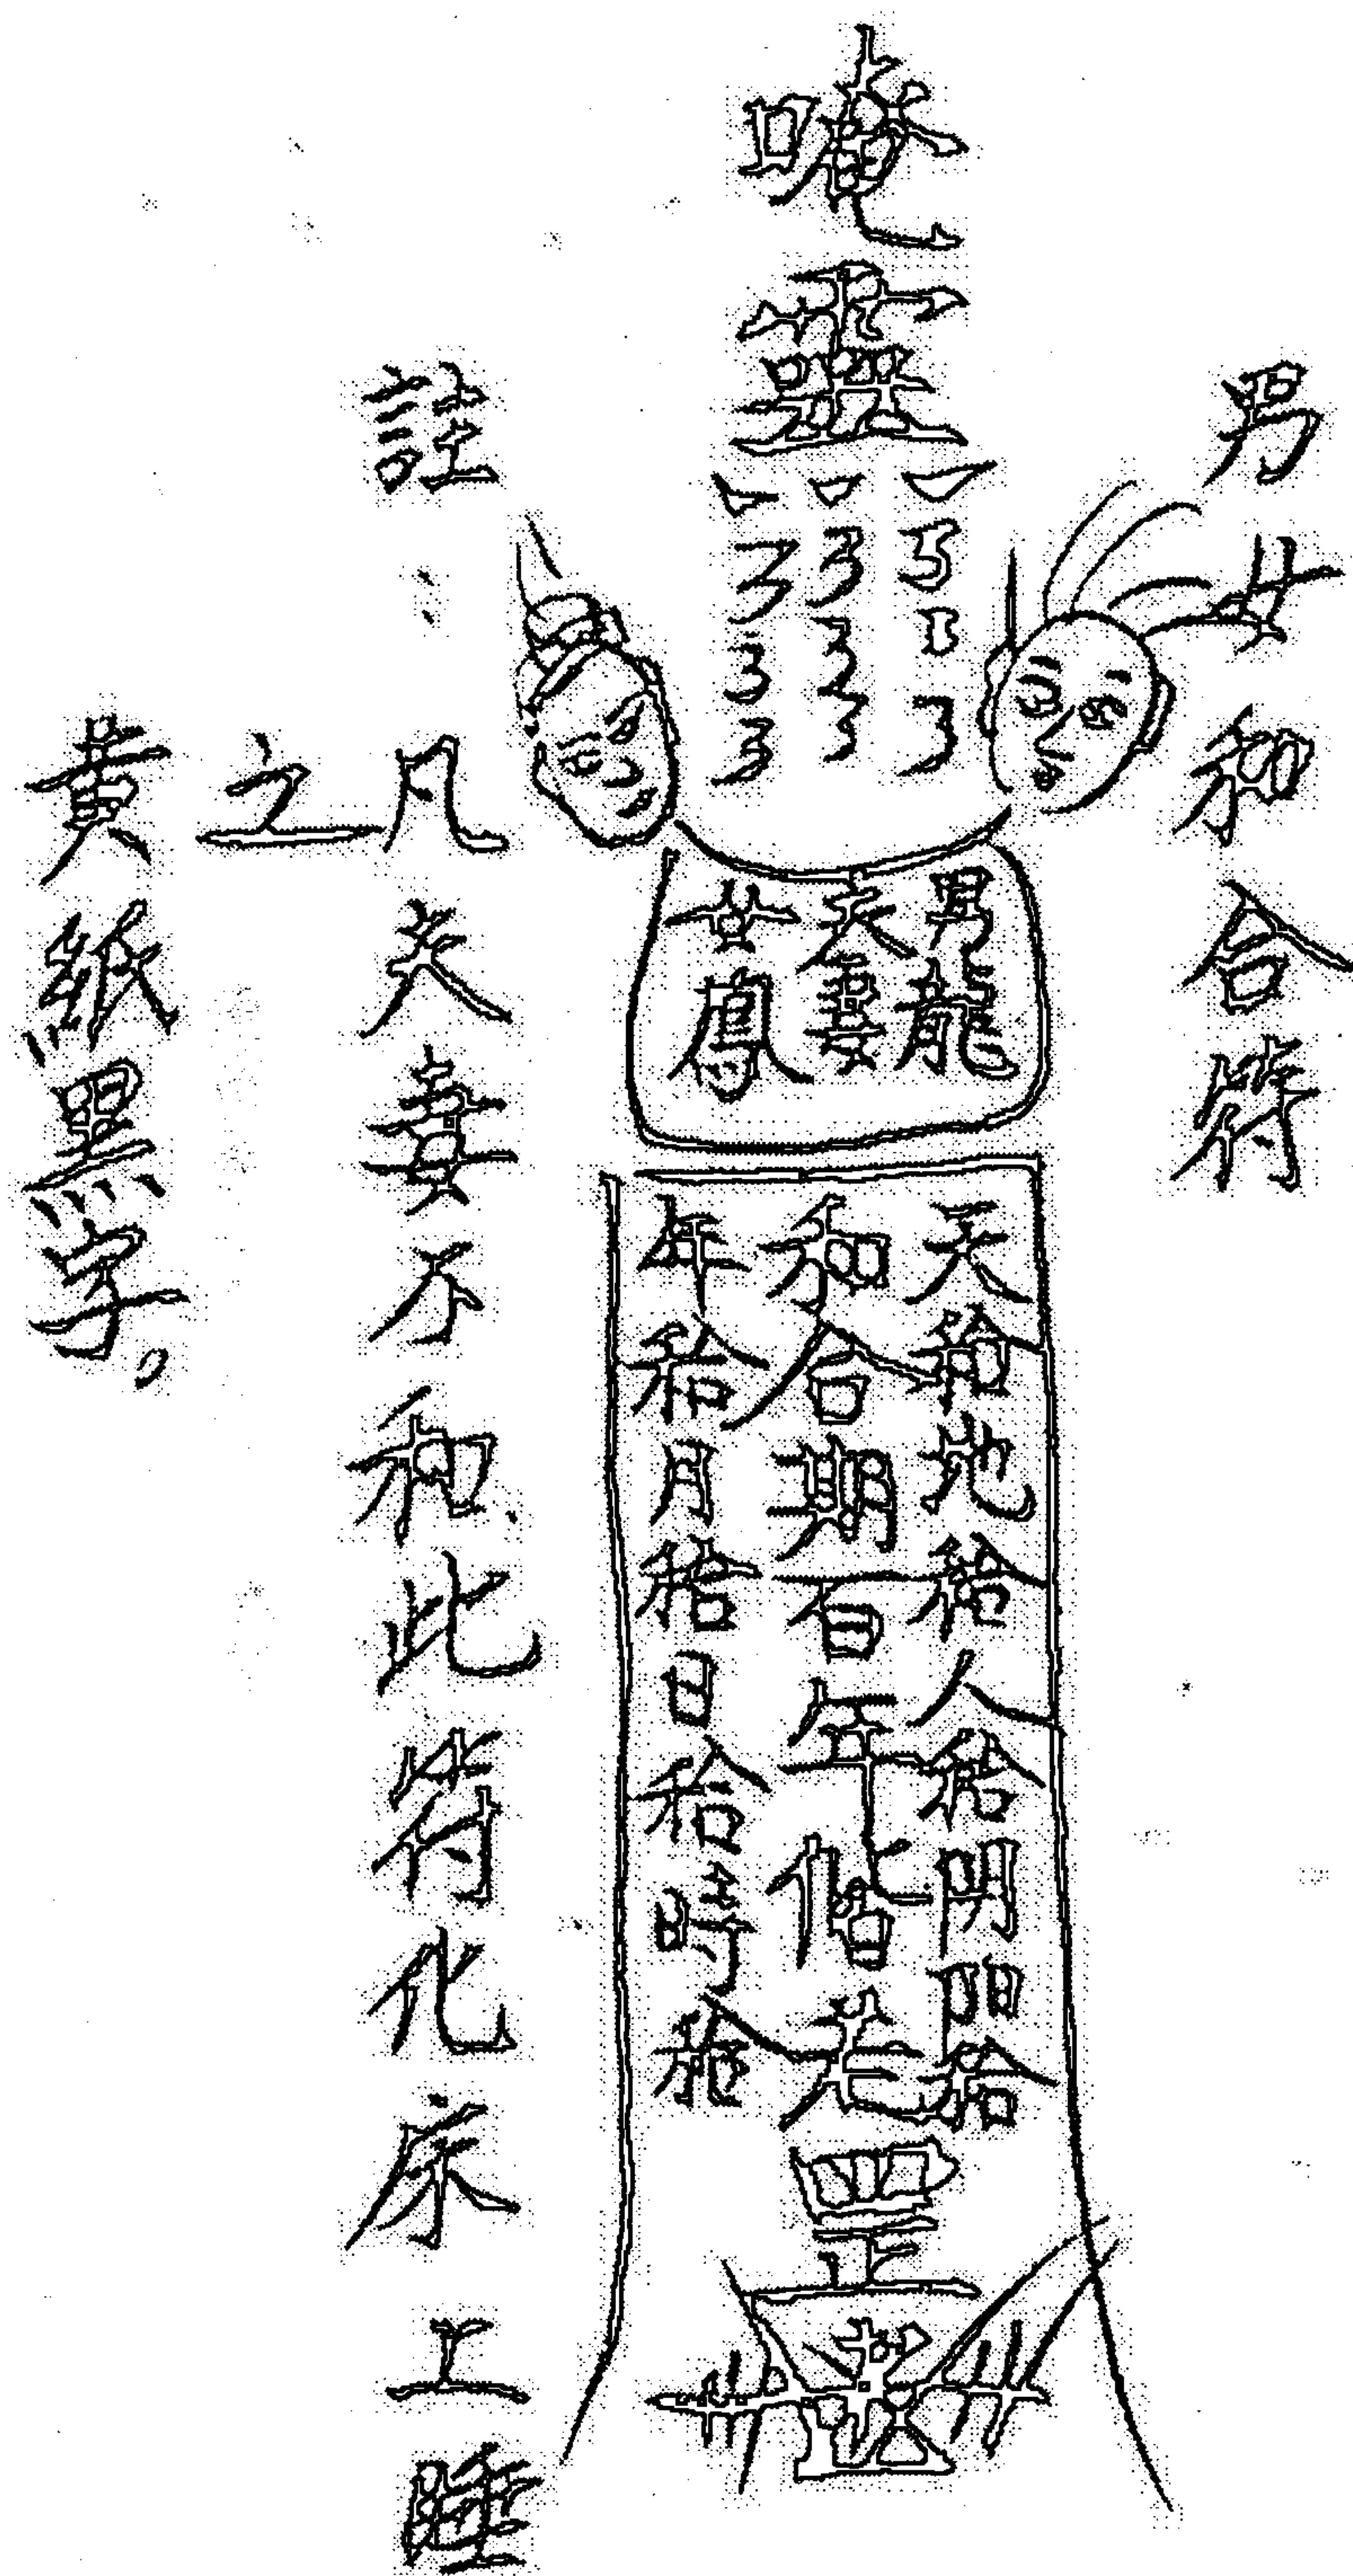 男女和合符
唵靈
男龍
夫妻
女鳳
天和合地和合人和合門陽和合
和合期百年偕老罡
年和合月和合日和合時和合
註：凡夫妻不和此符化床上睡
之
黃紙墨字。